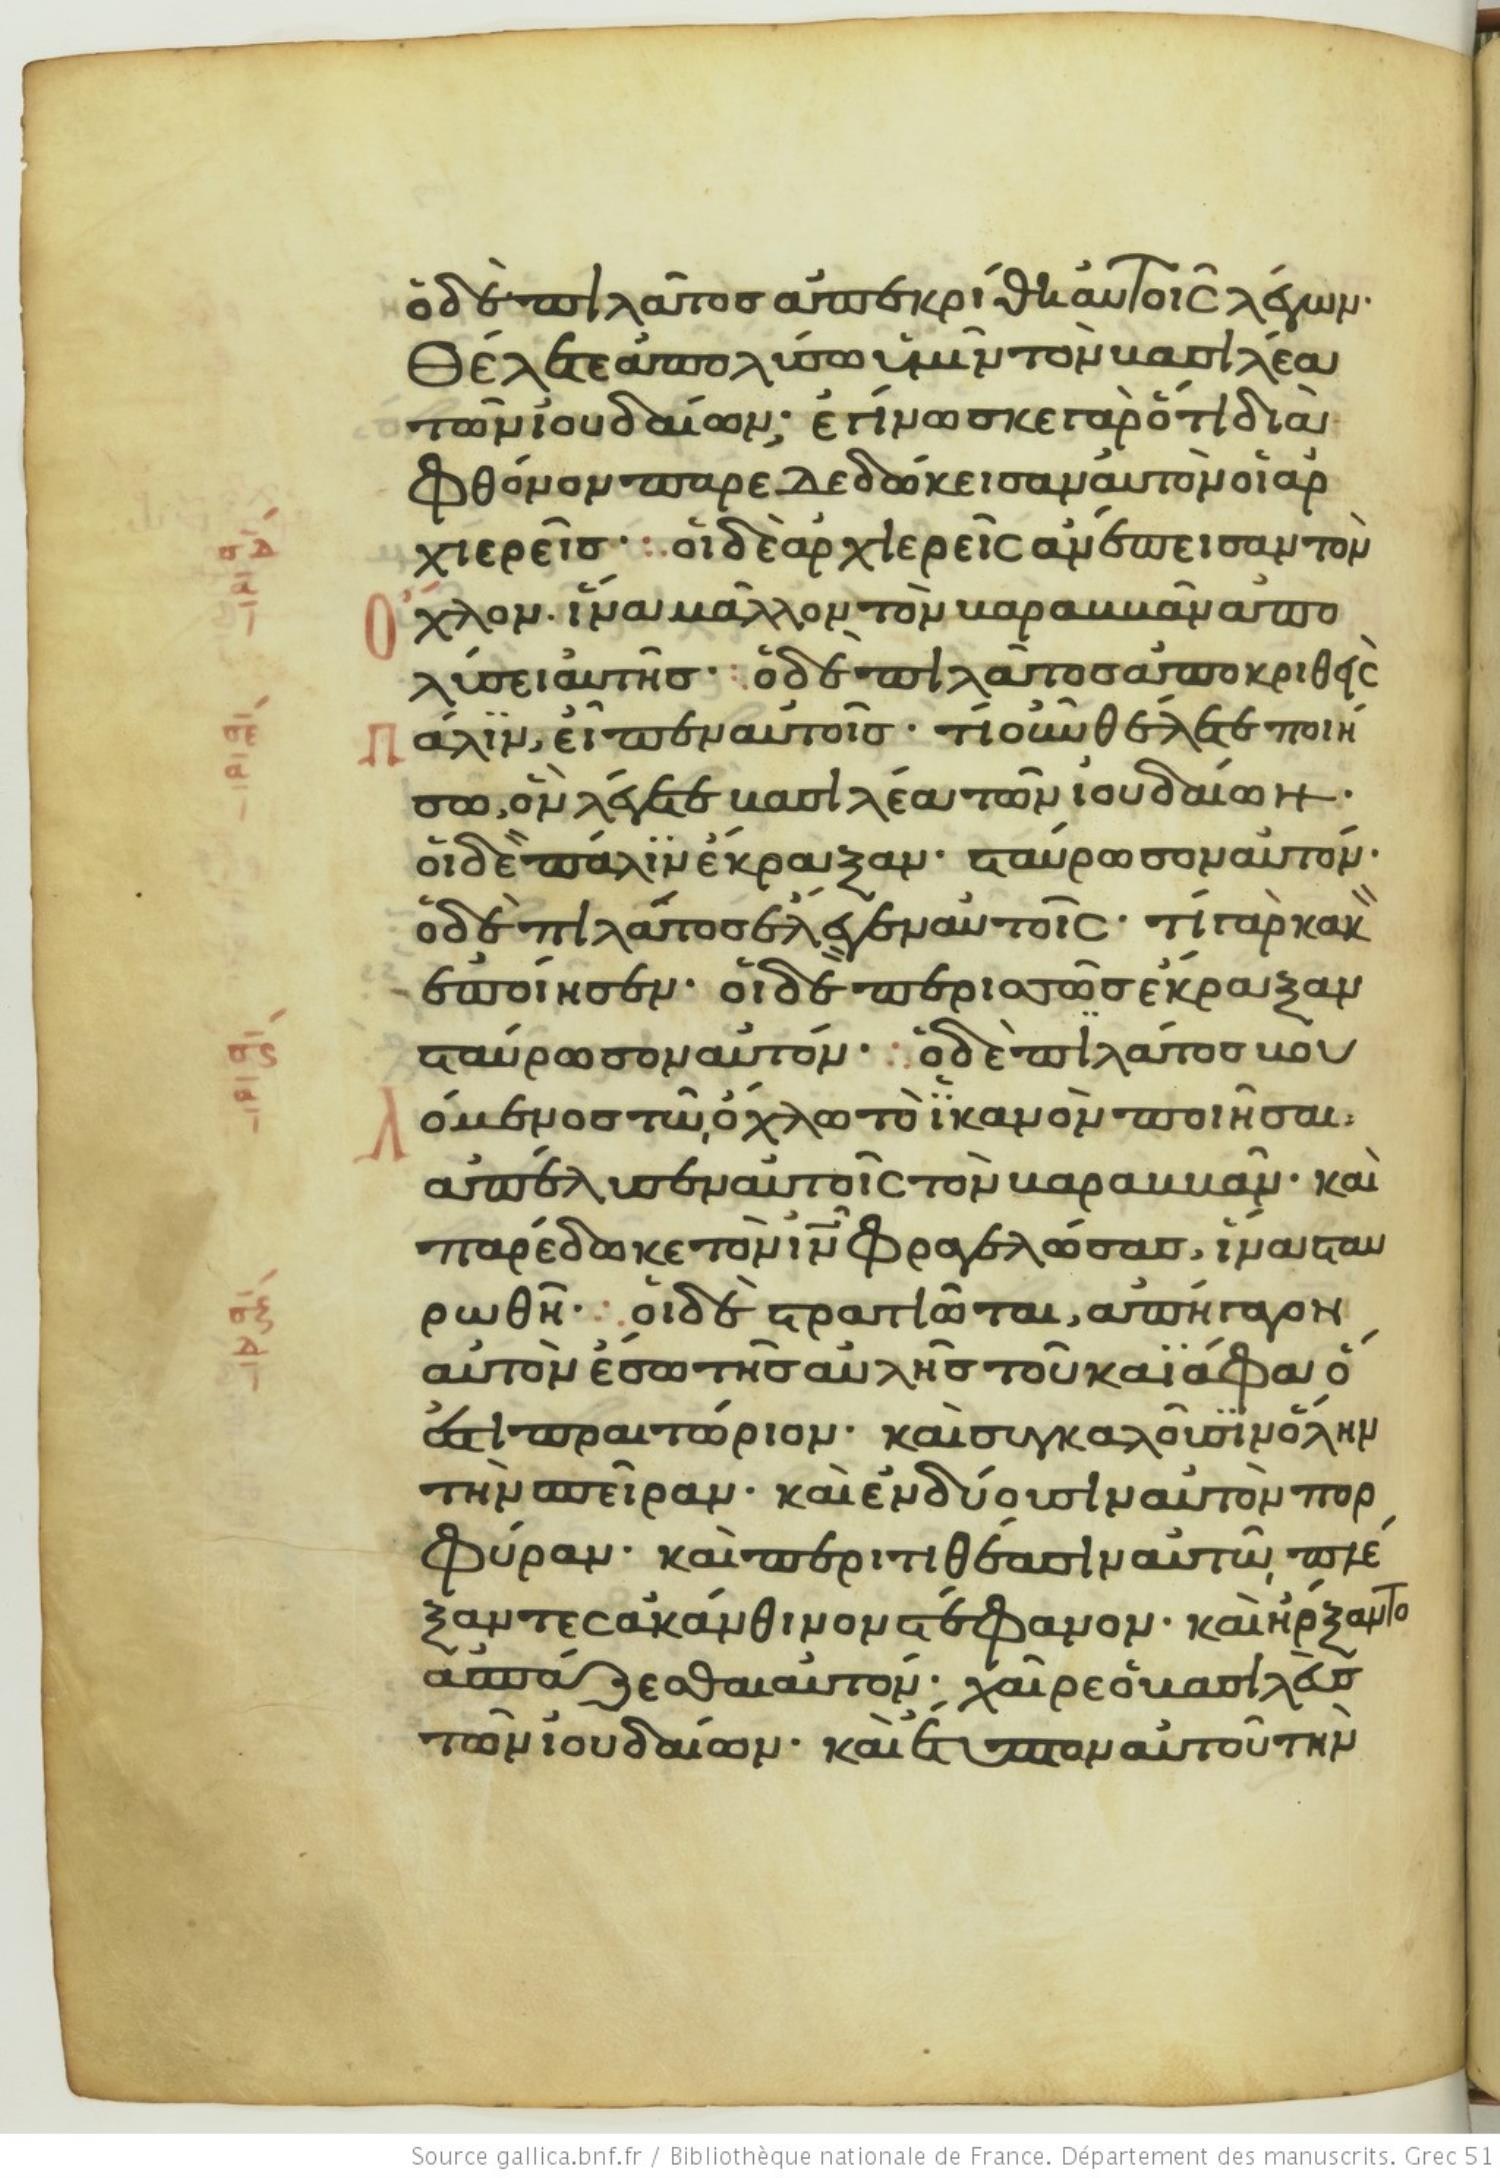 ὁ δὲ πιλάτος ἀπεκρίθη αὐτοῖς λέγων·
Θέλετε ἀπολύσω ὑμῖν τὸν βασιλέα
τῶν ἰουδαίων; ἐγίνωσκε γὰρ ὅτι διὰ
φθόνον παρεδεδώκεισαν αὐτὸν οἱ ἀρ
χιερεῖς· οἱ δὲ ἀρχιερεῖς ἀνέπεισαν τὸν
ὄχλον. ἵνα μᾶλλον τὸν βαραββᾶν ἀπο
λύσει αὐτῆς· ὁ δὲ πιλάτος ἀποκριθεὶς
πάλϊν, εἶπεν αὐτοῖς· τί οὖν θέλετε ποιή
σω, ὃν λέγετε βασιλέα τῶν ἰουδαίων·
οἱ δὲ πάλϊν ἔκραξαν· σταύρωσον αὐτόν·
ὁ δὲ πιλάτος ἔλεγεν αὐτοῖς· τί γὰρ κακὸν
ἐποίησεν· οἱ δὲ περισσῶς ἔκραξαν
σταύρωσον αὐτόν· ὁ δὲ πιλάτος βου
λόμενος τῶ ὄχλω τὸ ἱκανὸν ποιῆσαι,
ἀπέλυσεν αὐτοῖς τὸν βαραββᾶν· καὶ
παρέδωκε τὸν ἰν φραγελώσας, ἵνα σταυ
ρωθῆ· οἱ δὲ στρατιῶται, ἀπήγαγον
αὐτὸν ἔσω τῆς αὐλῆς τοῦ καϊάφα ὅ
ἐστι πραιτώριον· καὶ συγκαλοῦσϊν ὅλην
τὴν σπεῖραν· καὶ ἐνδύουσιν αὐτὸν πορ
φύραν· καὶ περιτιθέασιν αὐτῶ πλέ
ξαντες ἀκάνθινον στέφανον· καὶ ἤρξαντο
ἀσπάζεσθαι αὐτόν· χαῖρε ὁ βασιλεὺς
τῶν ἰουδαίων· καὶ ἔτυπτον αὐτοῦ τὴν
Source gallica.bnf.fr / Bibliothèque nationale de France. Département des manuscrits. Grec 51